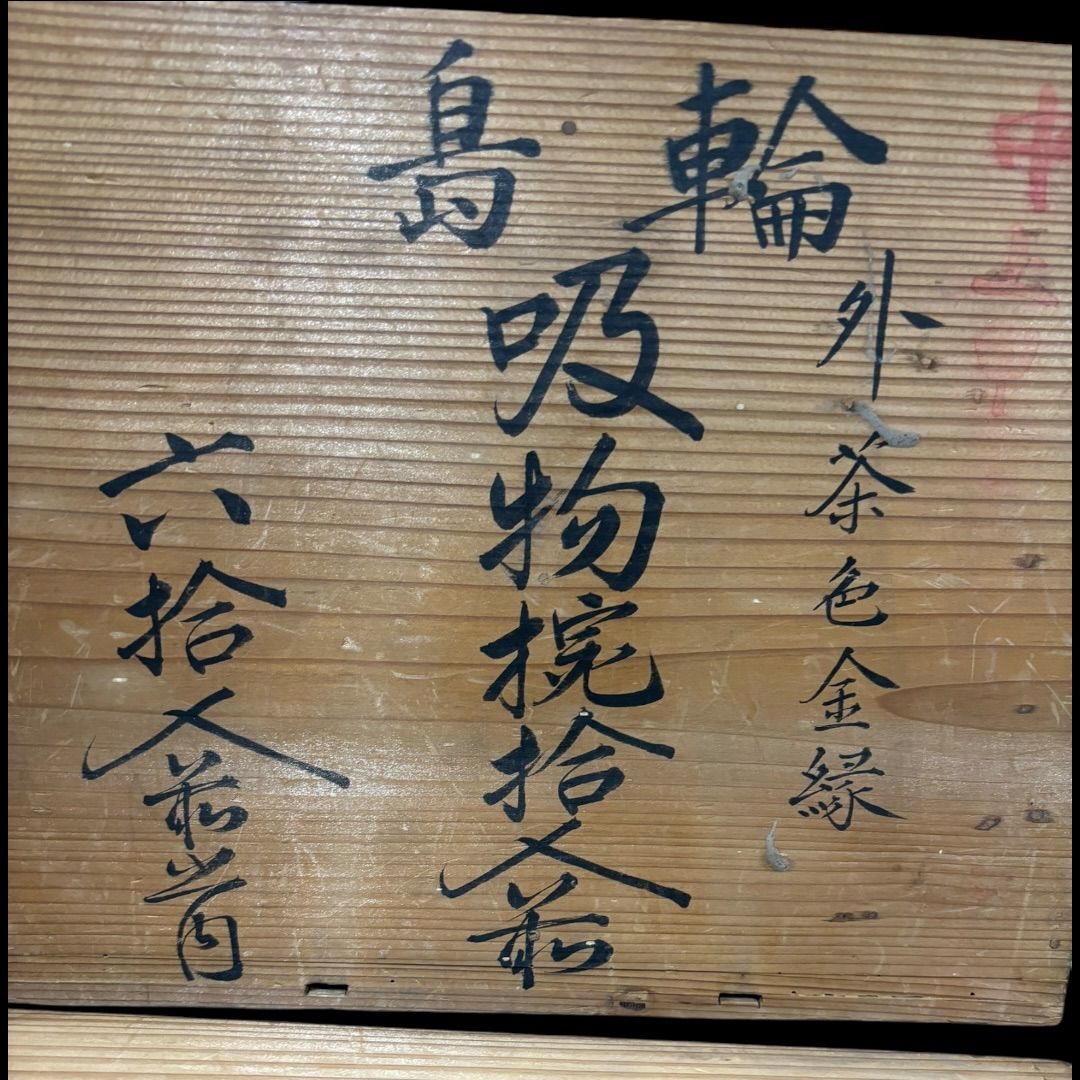 中
輪島
外茶色金縁
吸物椀拾人前
六拾人前